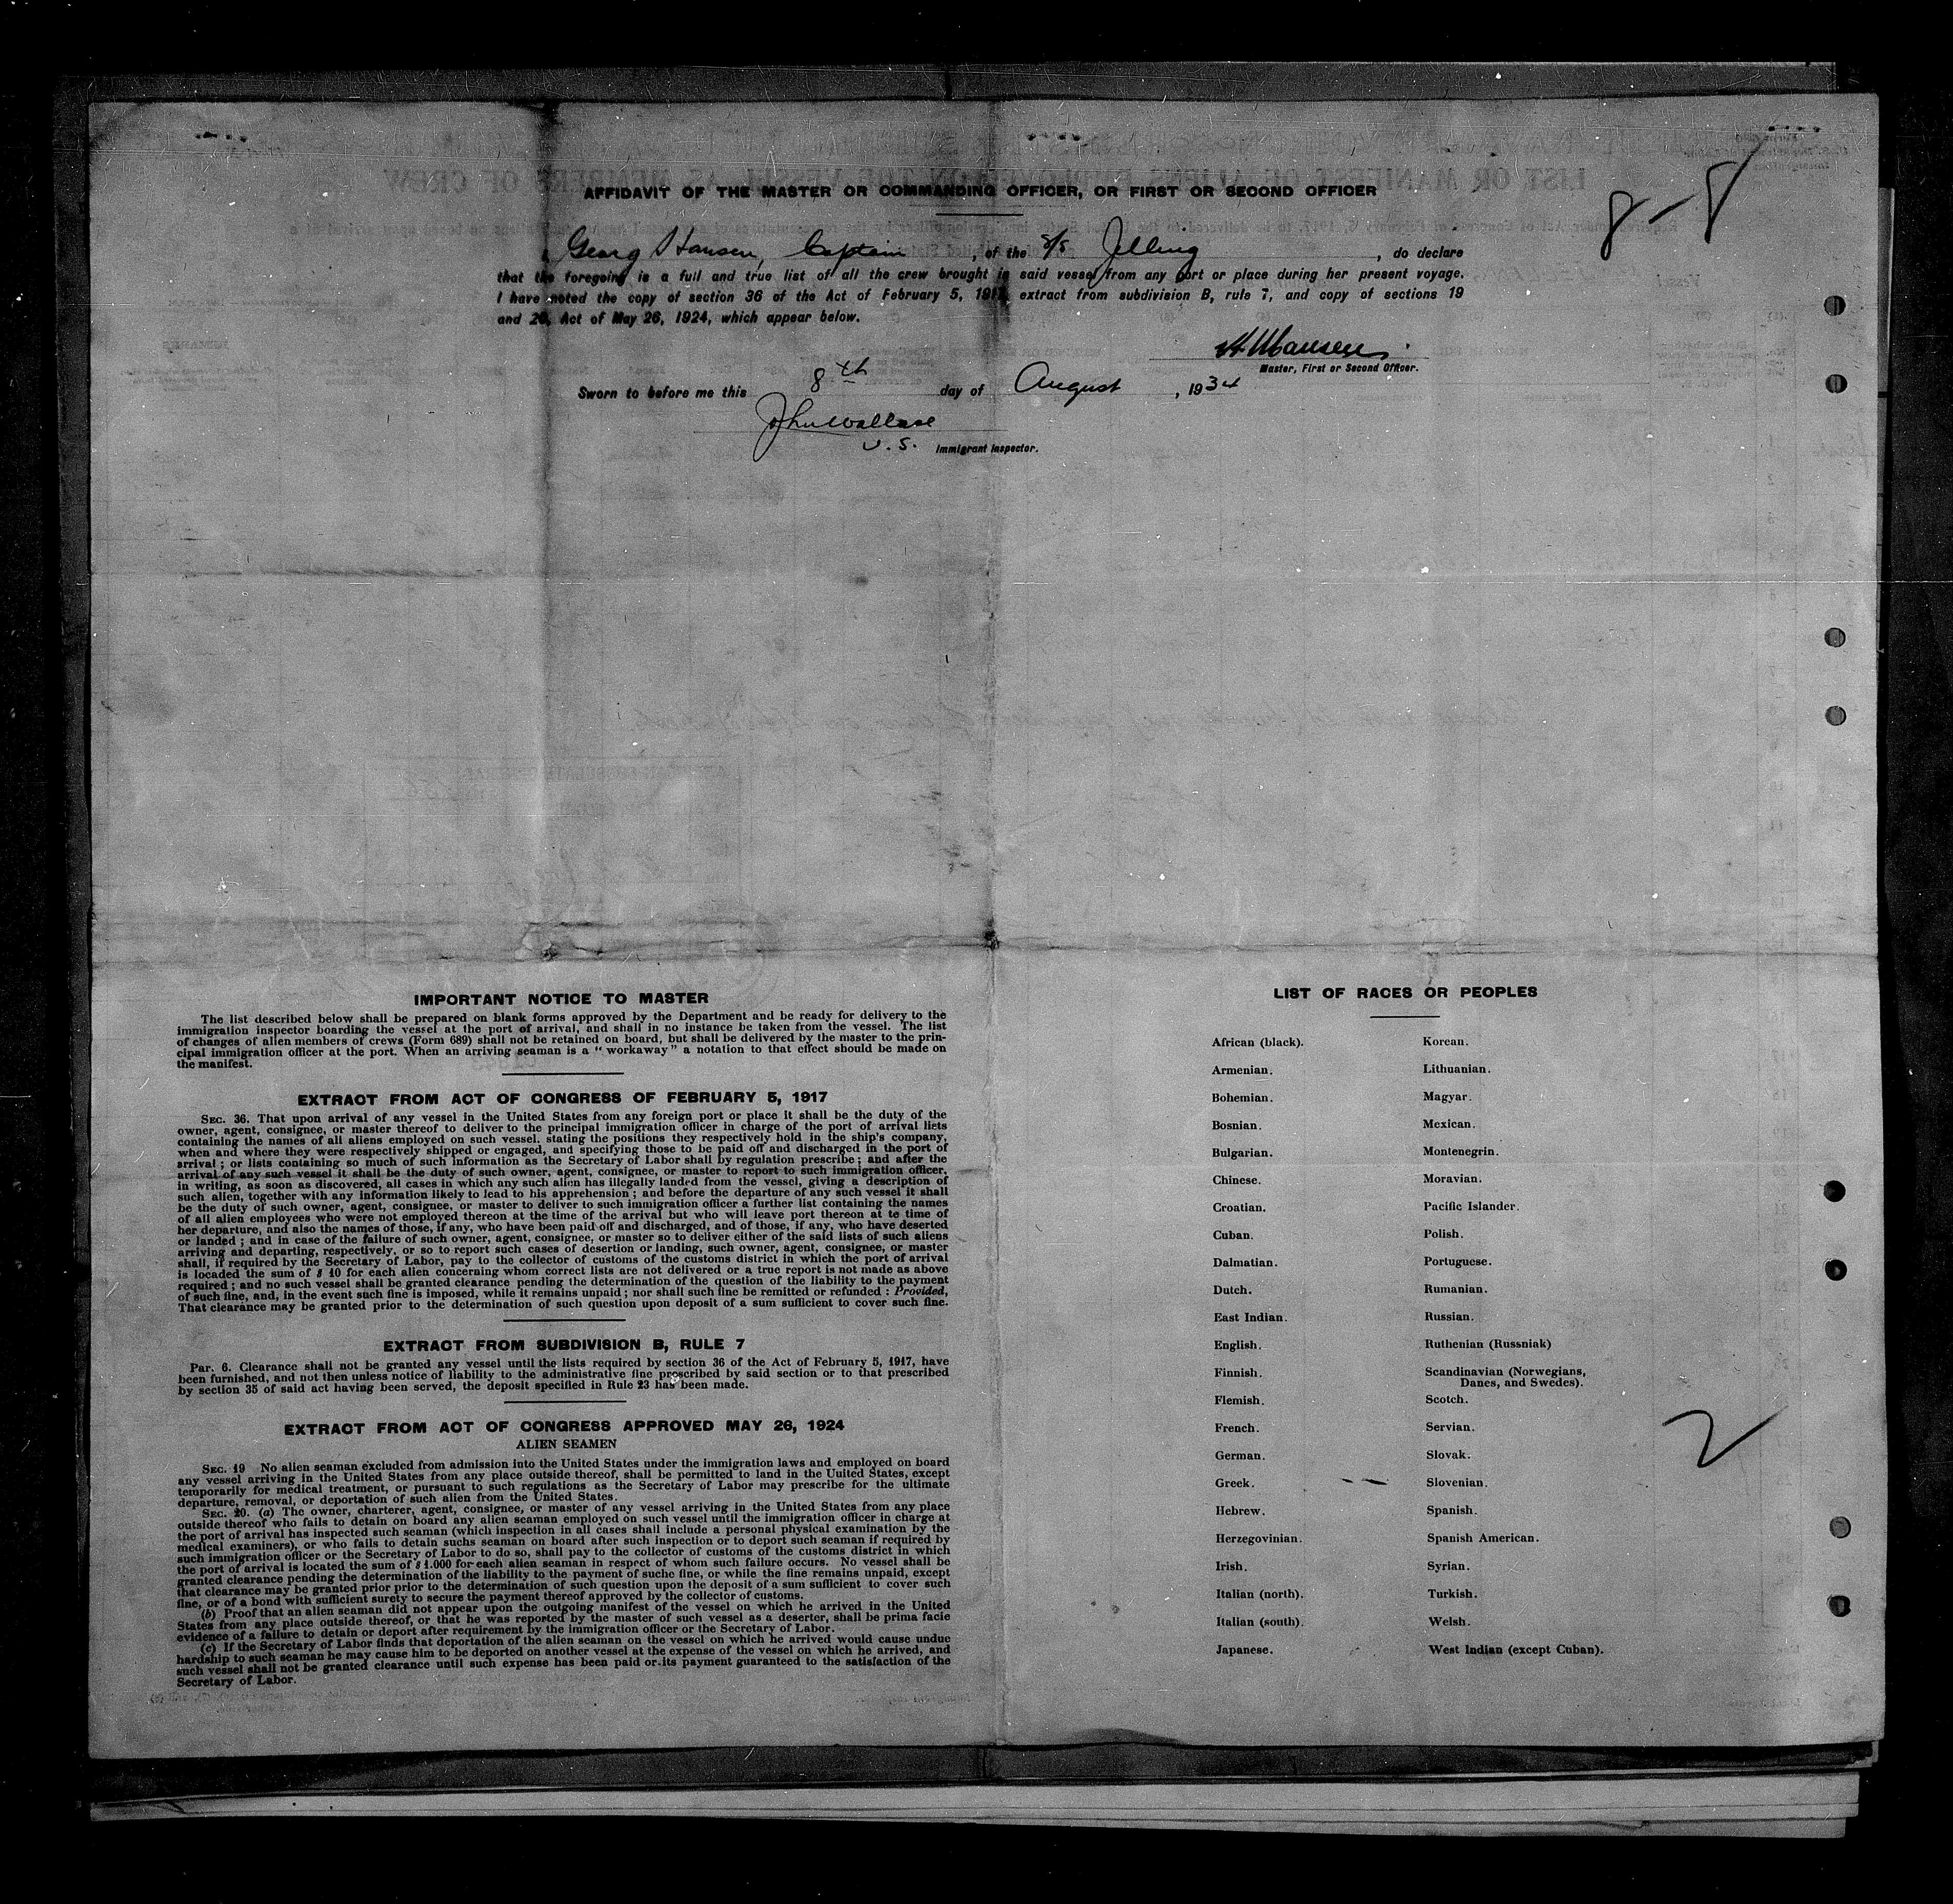 8-8
AFFIDAVIT OF THE MASTER OR COMMANDING OFFICER, OR FIRST OR SECOND OFFICER
I, Georg Hansen, Captain, of the S/S Jelling, do declare
that the foregoing is a full and true list of all the crew brought in said vessel from any port or place during her present voyage.
I have noted the copy of section 36 of the Act of February 5, 1917, extract from subdivision B, rule 7, and copy of sections 19
and 20, Act of May 26, 1924, which appear below.
Hansen
Master, First or Second Officer.
Sworn to before me this 8th day of August, 1934
John Wallace
U.S. Immigrant Inspector.
IMPORTANT NOTICE TO MASTER
The list described below shall be prepared on blank forms approved by the Department and be ready for delivery to the
immigration inspector boarding the vessel at the port of arrival, and shall in no instance be taken from the vessel. The list
of changes of alien members of crews (Form 689) shall not be retained on board, but shall be delivered by the master to the prin-
cipal immigration officer at the port. When an arriving seaman is a "workaway" a notation to that effect should be made on
the manifest.
EXTRACT FROM ACT OF CONGRESS OF FEBRUARY 5, 1917
SEC. 36. That upon arrival of any vessel in the United States from any foreign port or place it shall be the duty of the
owner, agent, consignee, or master thereof to deliver to the principal immigration officer in charge of the port of arrival lists
containing the names of all aliens employed on such vessel. stating the positions they respectively hold in the ship's company,
when and where they were respectively shipped or engaged, and specifying those to be paid off and discharged in the port of
arrival ; or lists containing so much of such information as the Secretary of Labor shall by regulation prescribe ; and after the
arrival of any such vessel it shall be the duty of such owner, agent, consignee, or master to report to such immigration officer,
in writing, as soon as discovered, all cases in which any such alien has illegally landed from the vessel, giving a description of
such alien, together with any information likely to lead to his apprehension ; and before the departure of any such vessel it shall
be the duty of such owner, agent, consignee, or master to deliver to such immigration officer a further list containing the names
of all alien employees who were not employed thereon at the time of the arrival but who will leave port thereon at te time of
her departure, and also the names of those, if any, who have been paid off and discharged, and of those, if any, who have deserted
or landed ; and in case of the failure of such owner, agent, consignee, or master so to deliver either of the said lists of such aliens
arriving and departing, respectively, or so to report such cases of desertion or landing, such owner, agent, consignee, or master
shall, if required by the Secretary of Labor, pay to the collector of customs of the customs district in which the port of arrival
is locaded the sum of $ 10 for each alien concerning whom correct lists are not delivered or a true report is not made as above
required ; and no such vessel shall be granted clearance pending the determination of the question of the liability to the payment
of such fine, and, in the event such fine is imposed, while it remains unpaid ; nor shall such fine be remitted or refunded : Provided,
That clearance may be granted prior to the determination of such question upon deposit of a sum sufficient to cover such fine.
EXTRACT FROM SUBDIVISION B, RULE 7
Par. 6. Clearance shall not be granted any vessel until the lists required by section 36 of the Act of February 5, 1917, have
been furnished, and not then unless notice of liability to the administrative fine prescribed by said section or to that prescribed
by section 35 of said act having been served, the deposit specified in Rule 23 has been made.
EXTRACT FROM ACT OF CONGRESS APPROVED MAY 26, 1924
ALIEN SEAMEN
SEC. 19 No alien seaman excluded from admission into the United States under the immigration laws and employed on board
any vessel arriving in the United States from any place outside thereof, shall be permitted to land in the United States, except
temporarily for medical treatment, or pursuant to such regulations as the Secretary of Labor may prescribe for the ultimate
departure, removal, or deportation of such alien from the United States.
SEC. 20. (a) The owner, charterer, agent, consignee, or master of any vessel arriving in the United States from any place
outside thereof who fails to detain on board any alien seaman employed on such vessel until the immigration officer in charge at
the port of arrival has inspected such seaman (which inspection in all cases shall include a personal physical examination by the
medical examiners), or who fails to detain suchs seaman on board after such inspection or to deport such seaman if required by
such immigration officer or the Secretary of Labor to do so, shall pay to the collector of customs of the customs district in which
the port of arrival is located the sum of $ 1.000 for each alien seaman in respect of whom such failure occurs. No vessel shall be
granted clearance pending the determination of the liability to the payment of suche fine, or while the fine remains unpaid, except
that clearance may be granted prior prior to the determination of such question upon the deposit of a sum sufficient to cover such
fine, or of a bond with sufficient surety to secure the payment thereof approved by the collector of customs.
(b) Proof that an alien seaman did not appear upon the outgoing manifest of the vessel on which he arrived in the United
States from any place outside thereof, or that he was reported by the master of such vessel as a deserter, shall be prima facie
evidence of a failure to detain or deport after requirement by the immigration officer or the Secretary of Labor.
(c) If the Secretary of Labor finds that deportation of the alien seaman on the vessel on which he arrived would cause undue
hardship to such seaman he may cause him to be deported on another vessel at the expense of the vessel on which he arrived, and
such vessel shall not be granted clearance until such expense has been paid or its payment guaranteed to the satisfaction of the
Secretary of Labor.
LIST OF RACES OR PEOPLES
African (black).
Armenian.
Bohemian.
Bosnian.
Bulgarian.
Chinese.
Croatian.
Cuban.
Dalmatian.
Dutch.
East Indian.
English.
Finnish.
Flemish.
French.
German.
Greek.
Hebrew.
Herzegovinian.
Irish.
Italian (north).
Italian (south).
Japanese.
Korean.
Lithuanian.
Magyar.
Mexican.
Montenegrin.
Moravian.
Pacific Islander.
Polish.
Portuguese.
Rumanian.
Russian.
Ruthenian (Russniak)
Scandinavian (Norwegians,
Danes, and Swedes).
Scotch.
Servian.
Slovak.
Slovenian.
Spanish.
Spanish American.
Syrian.
Turkish.
Welsh.
West Indian (except Cuban).
2